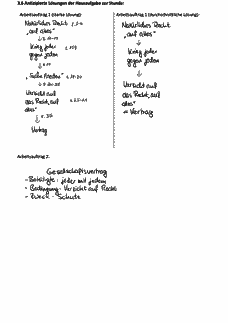 3.6 Antizipierte Lösungen der Hausaufgabe zur Stunde:
Arbeitsauftrag 1 (starke Lösung):
Natürliches Recht
„auf alles“
Krieg jeder
gegen jeden
„Suche Frieden“
Verzicht auf
das Recht, auf
alles“
Vertrag
Arbeitsauftrag 1 (durchschnittliche Lösung):
Natürliches Recht
„auf alles“
Krieg jeder
gegen jeden
Verzicht auf
das Recht, auf
alles“
= Vertrag
Arbeitsauftrag 2:
Gesellschaftsvertrag
- Beteiligte: jeder mit jedem
- Bedingung: Verzicht auf Recht
- Zweck: Schutz